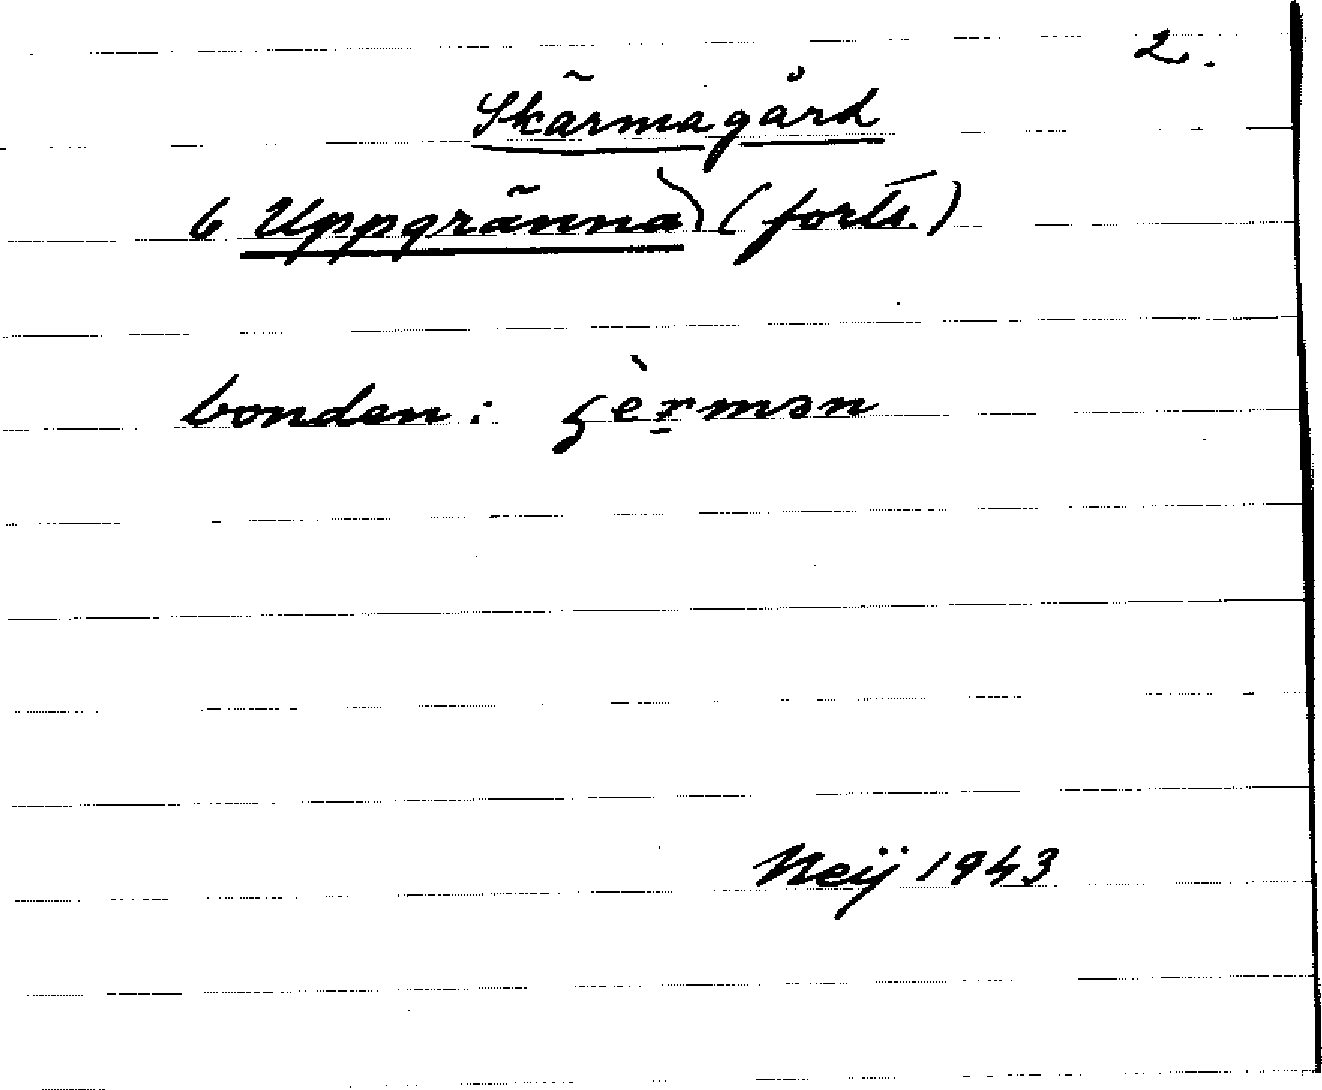 2.
Skärmagård
6 Uppgränna) (forts.)
bonden: ʂèrmən
Neij 1943